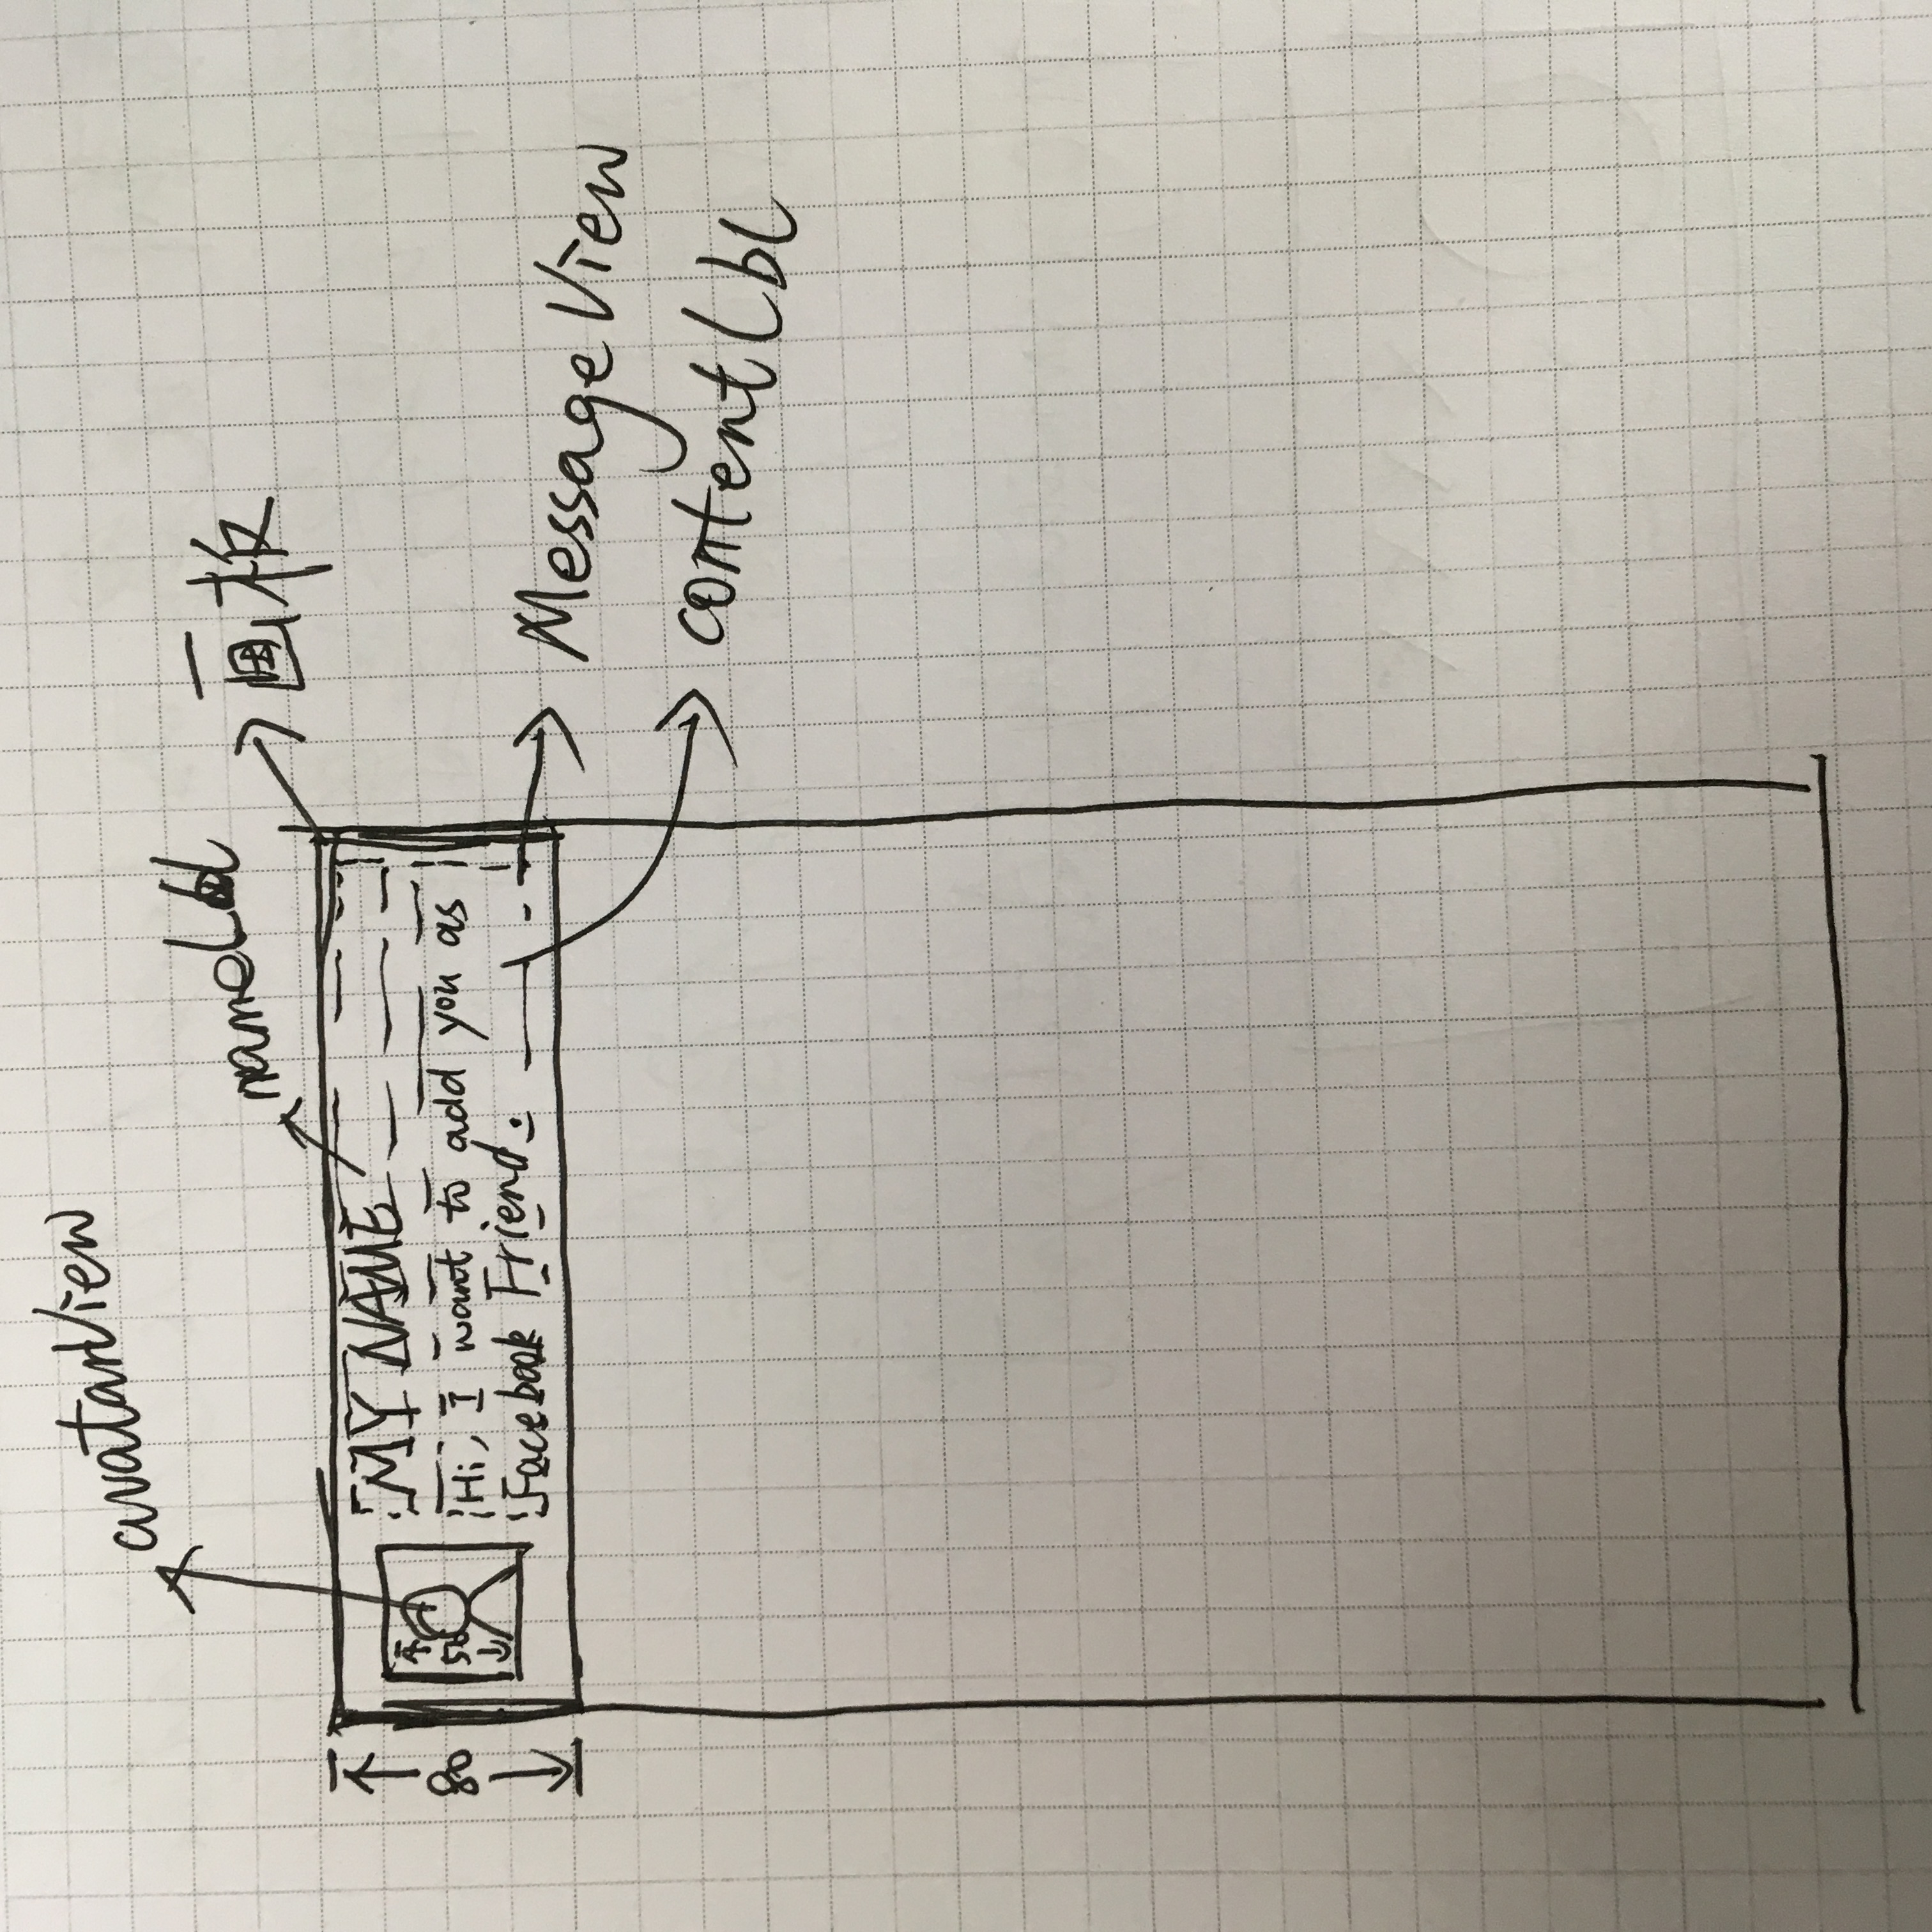 avatarView
nameLbl
画板
80
50
MY NAME
Hi, I want to add you as
Facebook Friend.
MessageView
contentLbl